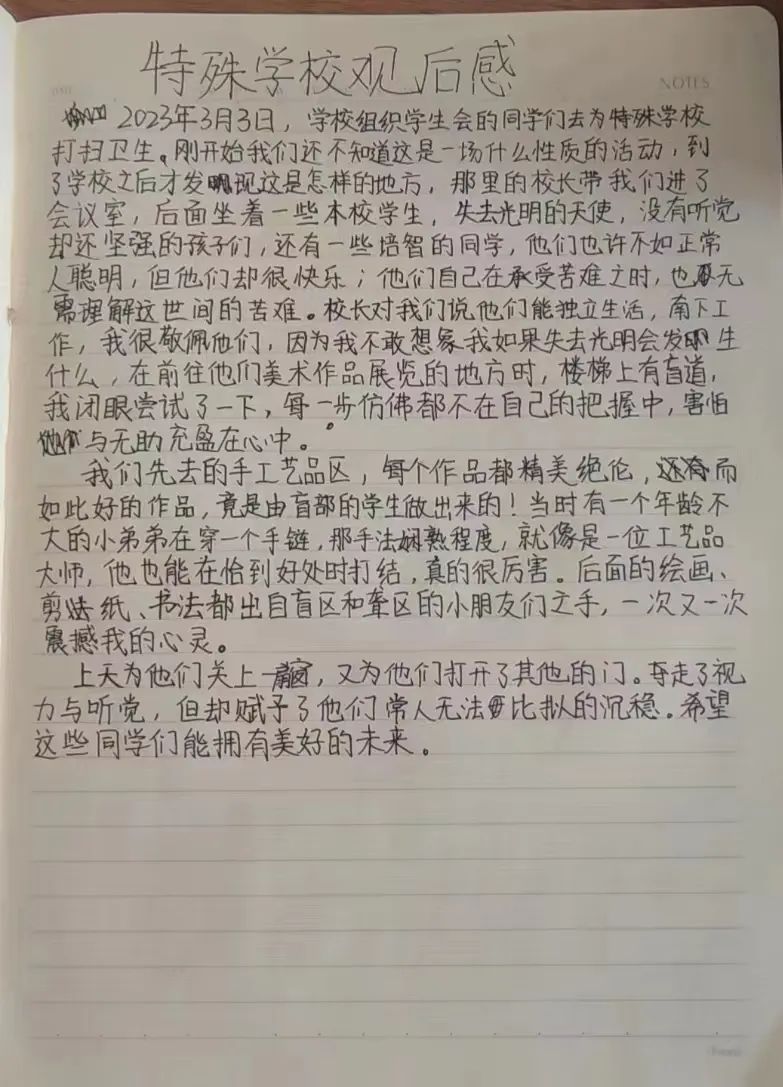 特殊学校观后感
NOTES
2023年3月3日，学校组织学生会的同学们去为特殊学校
打扫卫生。刚开始我们还不知道这是一场什么性质的活动，到
了学校之后才发现这是怎样的地方，那里的校长带我们进了
会议室，后面坐着一些本校学生，失去光明的天使，没有听觉
却还坚强的孩子们，还有一些培智的同学，他们也许不如正常
人聪明，但他们却很快乐；他们自己在承受苦难之时，也无
需理解这世间的苦难。校长对我们说他们能独立生活，南下工
作，我很敬佩他们，因为我不敢想象我如果失去光明会发生
什么，在前往他们美术作品展览的地方时，楼梯上有盲道，
我闭眼尝试了一下，每一步仿佛都不在自己的把握中，害怕
与无助充盈在心中。
我们先去的手工艺品区，每个作品都精美绝伦，而
如此好的作品，竟是由盲部的学生做出来的！当时有一个年龄不
大的小弟弟在穿一个手链，那手法娴熟程度，就像是一位工艺品
大师，他也能在恰到好处时打结，真的很厉害。后面的绘画、
剪纸、书法都出自盲区和聋区的小朋友们之手，一次又一次
震撼我的心灵。
上天为他们关上一扇窗，又为他们打开了其他的门。夺走了视
力与听觉，但却赋予了他们常人无法比拟的沉稳。希望
这些同学们能拥有美好的未来。